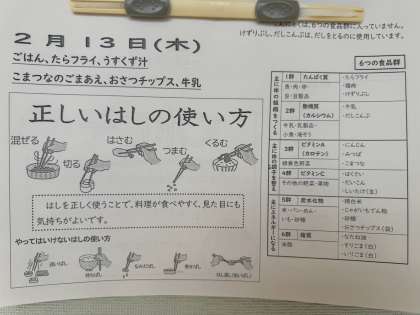 んにくは、6つの食品群に入っていません。
けずりぶし、だしこんぶは、だしをとるのに使用しています。
2月13日(木)
ごはん、たらフライ、うすくず汁
こまつなのごまあえ、おさつチップス、牛乳
正しいはしの使い方
混ぜる
切る
はさむ
つまむ
くるむ
はしを正しく使うことで、料理が食べやすく、見た目にも
気持ちがよいです。
やってはいけないはしの使い方
6つの食品群
主に体の組織をつくる
1群 たんぱく質
魚・肉・卵・
豆・豆製品
・たらフライ
・鶏肉
・けずりぶし
2群 無機質
(カルシウム)
牛乳・乳製品・
小魚・海そう
・牛乳
・だしこんぶ
主に体の調子を整える
3群 ビタミンA
(カロテン)
緑黄色野菜
・にんじん
・みつば
・こまつな
4群 ビタミンC
その他の野菜・果物
・はくさい
・だいこん
・しいたけ(生)
主にエネルギーになる
5群 炭水化物
米・パン・めん・
いも・砂糖
・精白米
・じゃがいもでん粉
・砂糖
・おさつチップス(袋)
6群 脂質
油脂
・なたね油
・すりごま(白)
・いりごま(白)